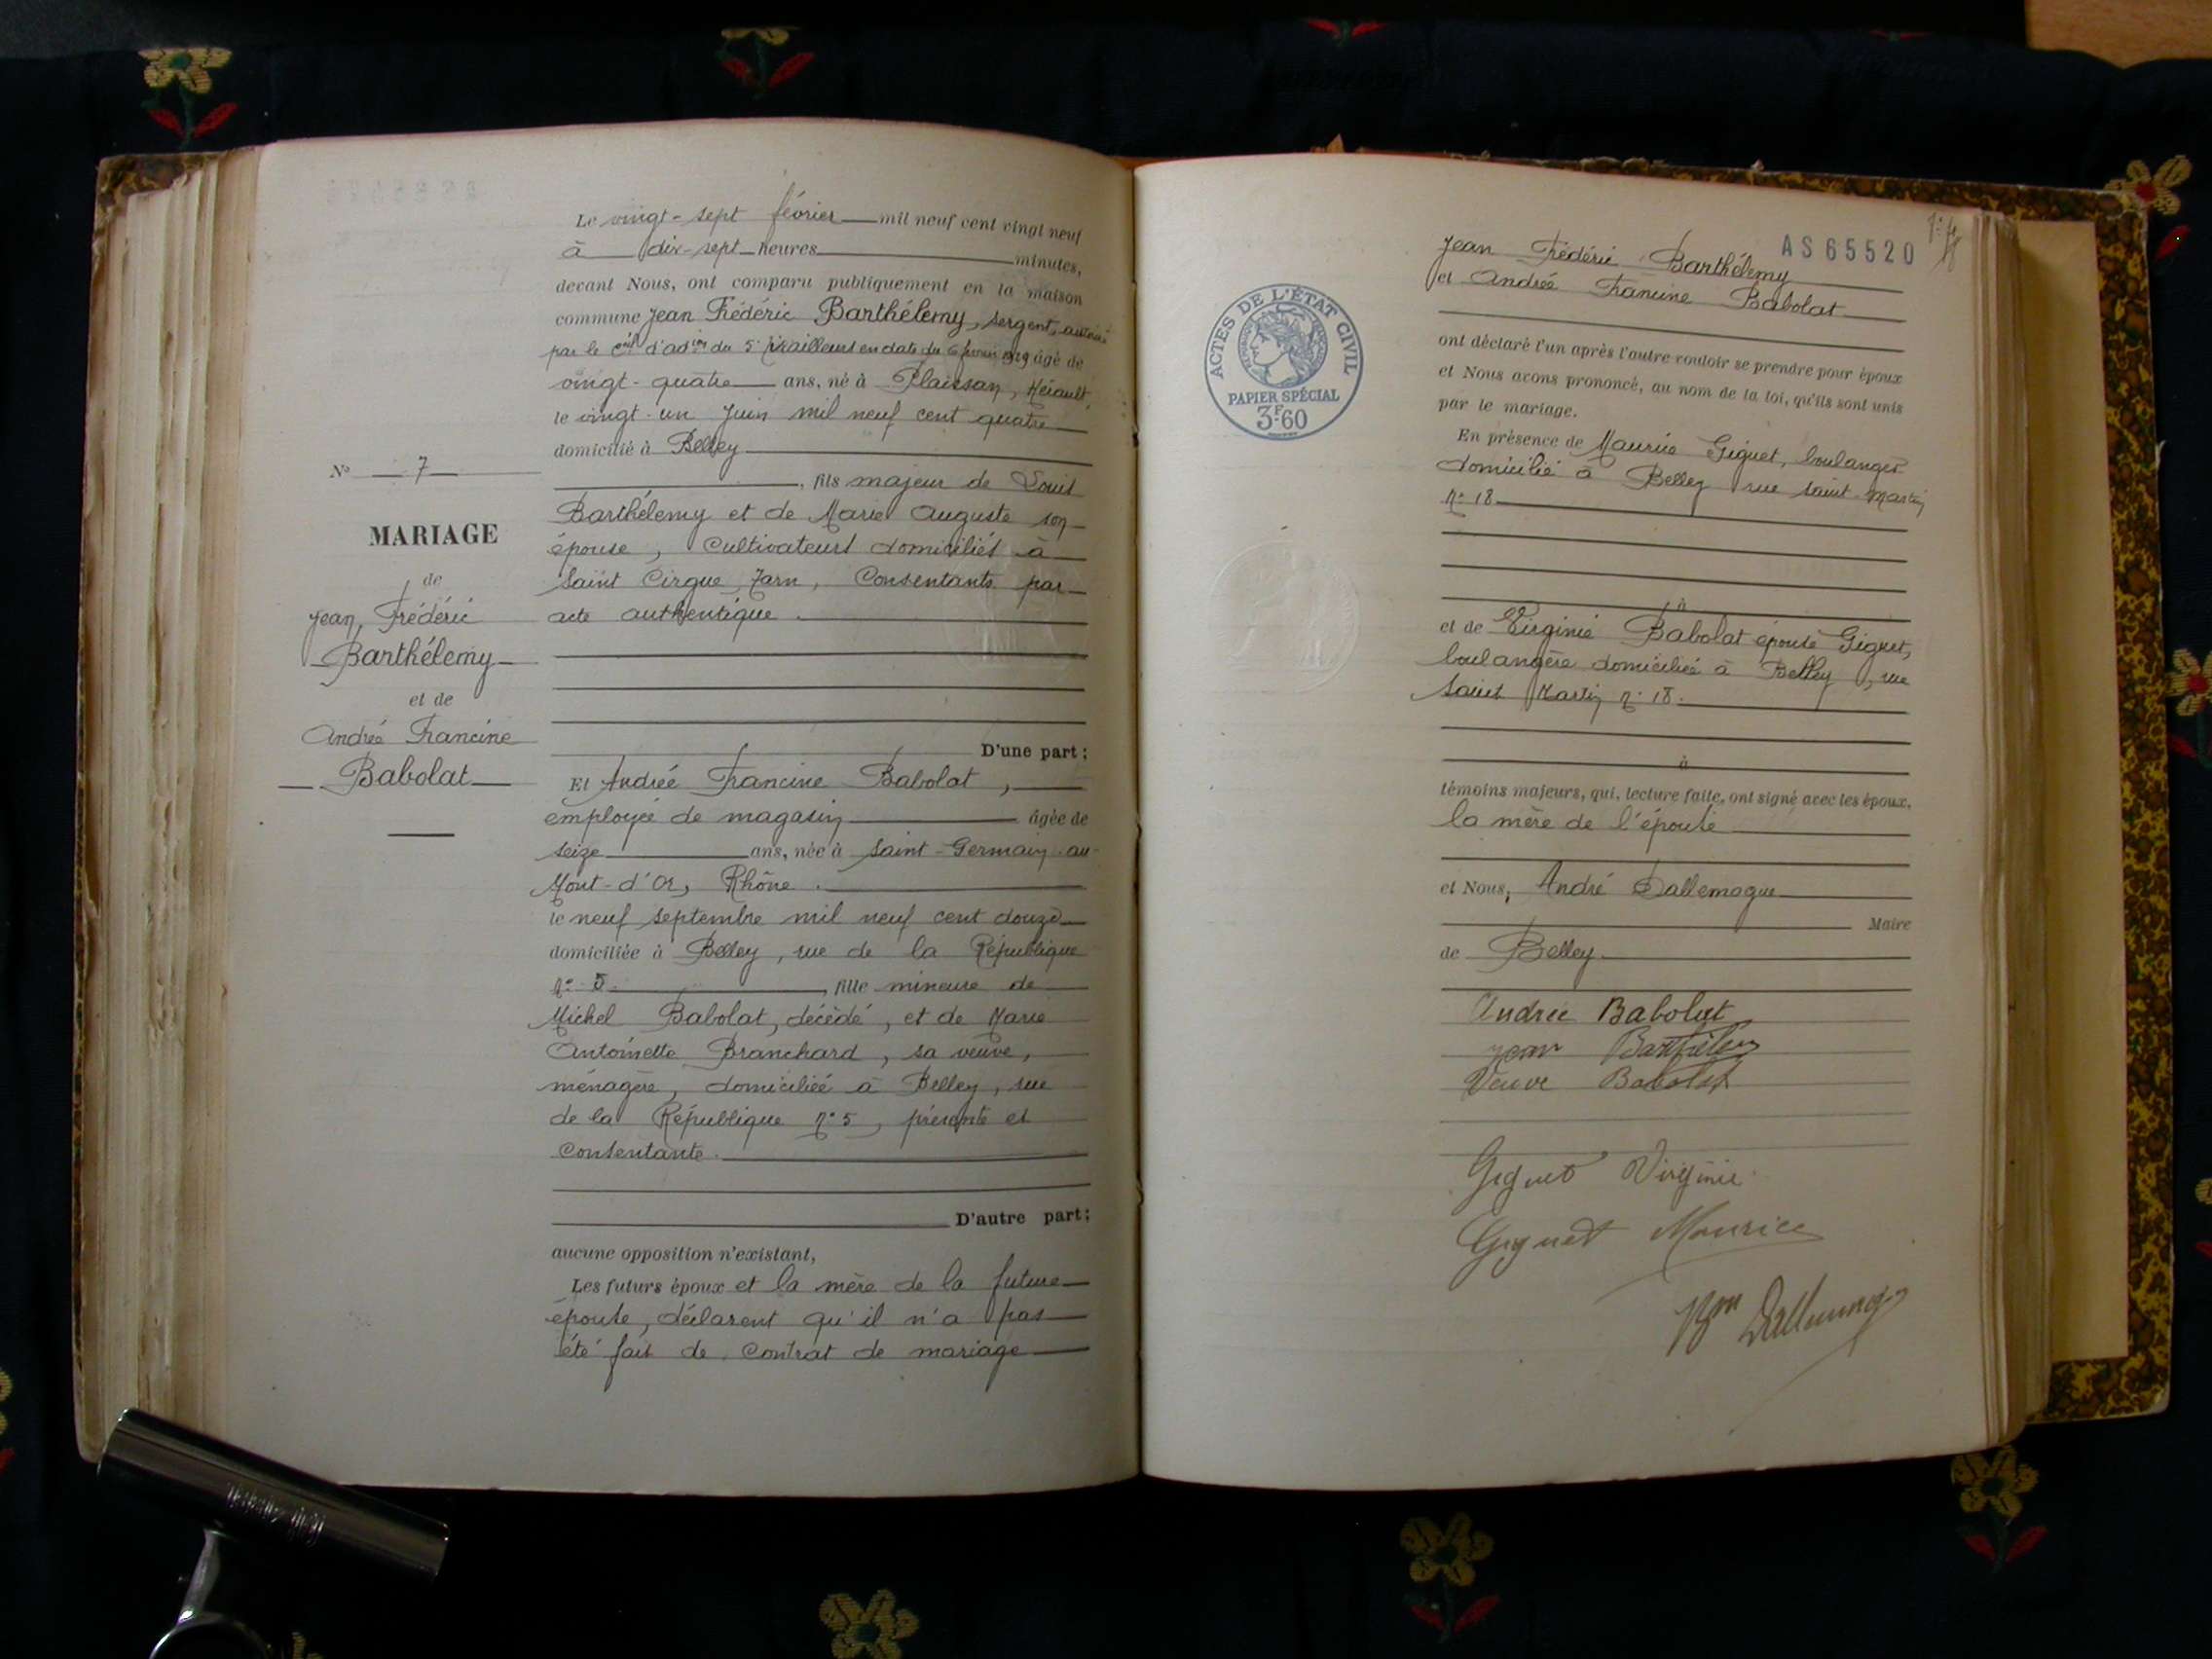 Le vingt-sept février mil neuf cent vingt neuf
à dix-sept heures minutes,
devant Nous, ont comparu publiquement en la maison
commune Jean Frédéric Barthélemy, sergent, autorisé
par le c^eil d'ad^ion du 5^e Tirailleurs en date du 6 février 1929 âgé de
vingt-quatre ans, né à Plaissan, Hérault,
le vingt-un Juin mil neuf cent quatre
domicilié à Belley
, fils majeur de Louis
Barthélemy et de Marie Auguste son
épouse, Cultivateurs domiciliés à
Saint Cirgue, Tarn, Consentants par
acte authentique.
D'une part;
N° 7
MARIAGE
de
Jean, Frédéric
Barthélemy
et de
Andrée Francine
Babolat
Et Andrée Francine Babolat,
employée de magasin âgée de
seize ans, née à Saint-Germain-au-
Mont-d'Or, Rhône.
le neuf septembre mil neuf cent douze
domiciliée à Belley, rue de la République
n° 5. , fille mineure de
Michel Babolat, décédé, et de Marie
Antoinette Branchard, sa veuve,
ménagère, domiciliée à Belley, rue
de la République n° 5, présente et
Consentante.
D'autre part;
aucune opposition n'existant,
Les futurs époux et la mère de la future
épouse, déclarent qu'il n'a pas
été fait de Contrat de mariage
AS 65520
Jean Frédéric Barthélemy
et Andrée Francine Babolat
ACTES DE L'ÉTAT CIVIL
PAPIER SPÉCIAL
3F.60
ont déclaré l'un après l'autre vouloir se prendre pour époux
et Nous avons prononcé, au nom de la loi, qu'ils sont unis
par le mariage.
En présence de Maurice Giguet, boulanger
domicilié à Belley rue Saint-Martin
n° 18
à
et de Virginie Babolat épouse Giguet,
boulangère domiciliée à Belley, rue
Saint Martin n° 18.
à
témoins majeurs, qui, lecture faite, ont signé avec les époux,
la mère de l'épouse
et Nous, André Dallemagne
Maire
de Belley.
Andrée Babolat
Jean Barthélemy
Veuve Babolat
Giguet Virginie
Giguet Maurice
Dallemagne